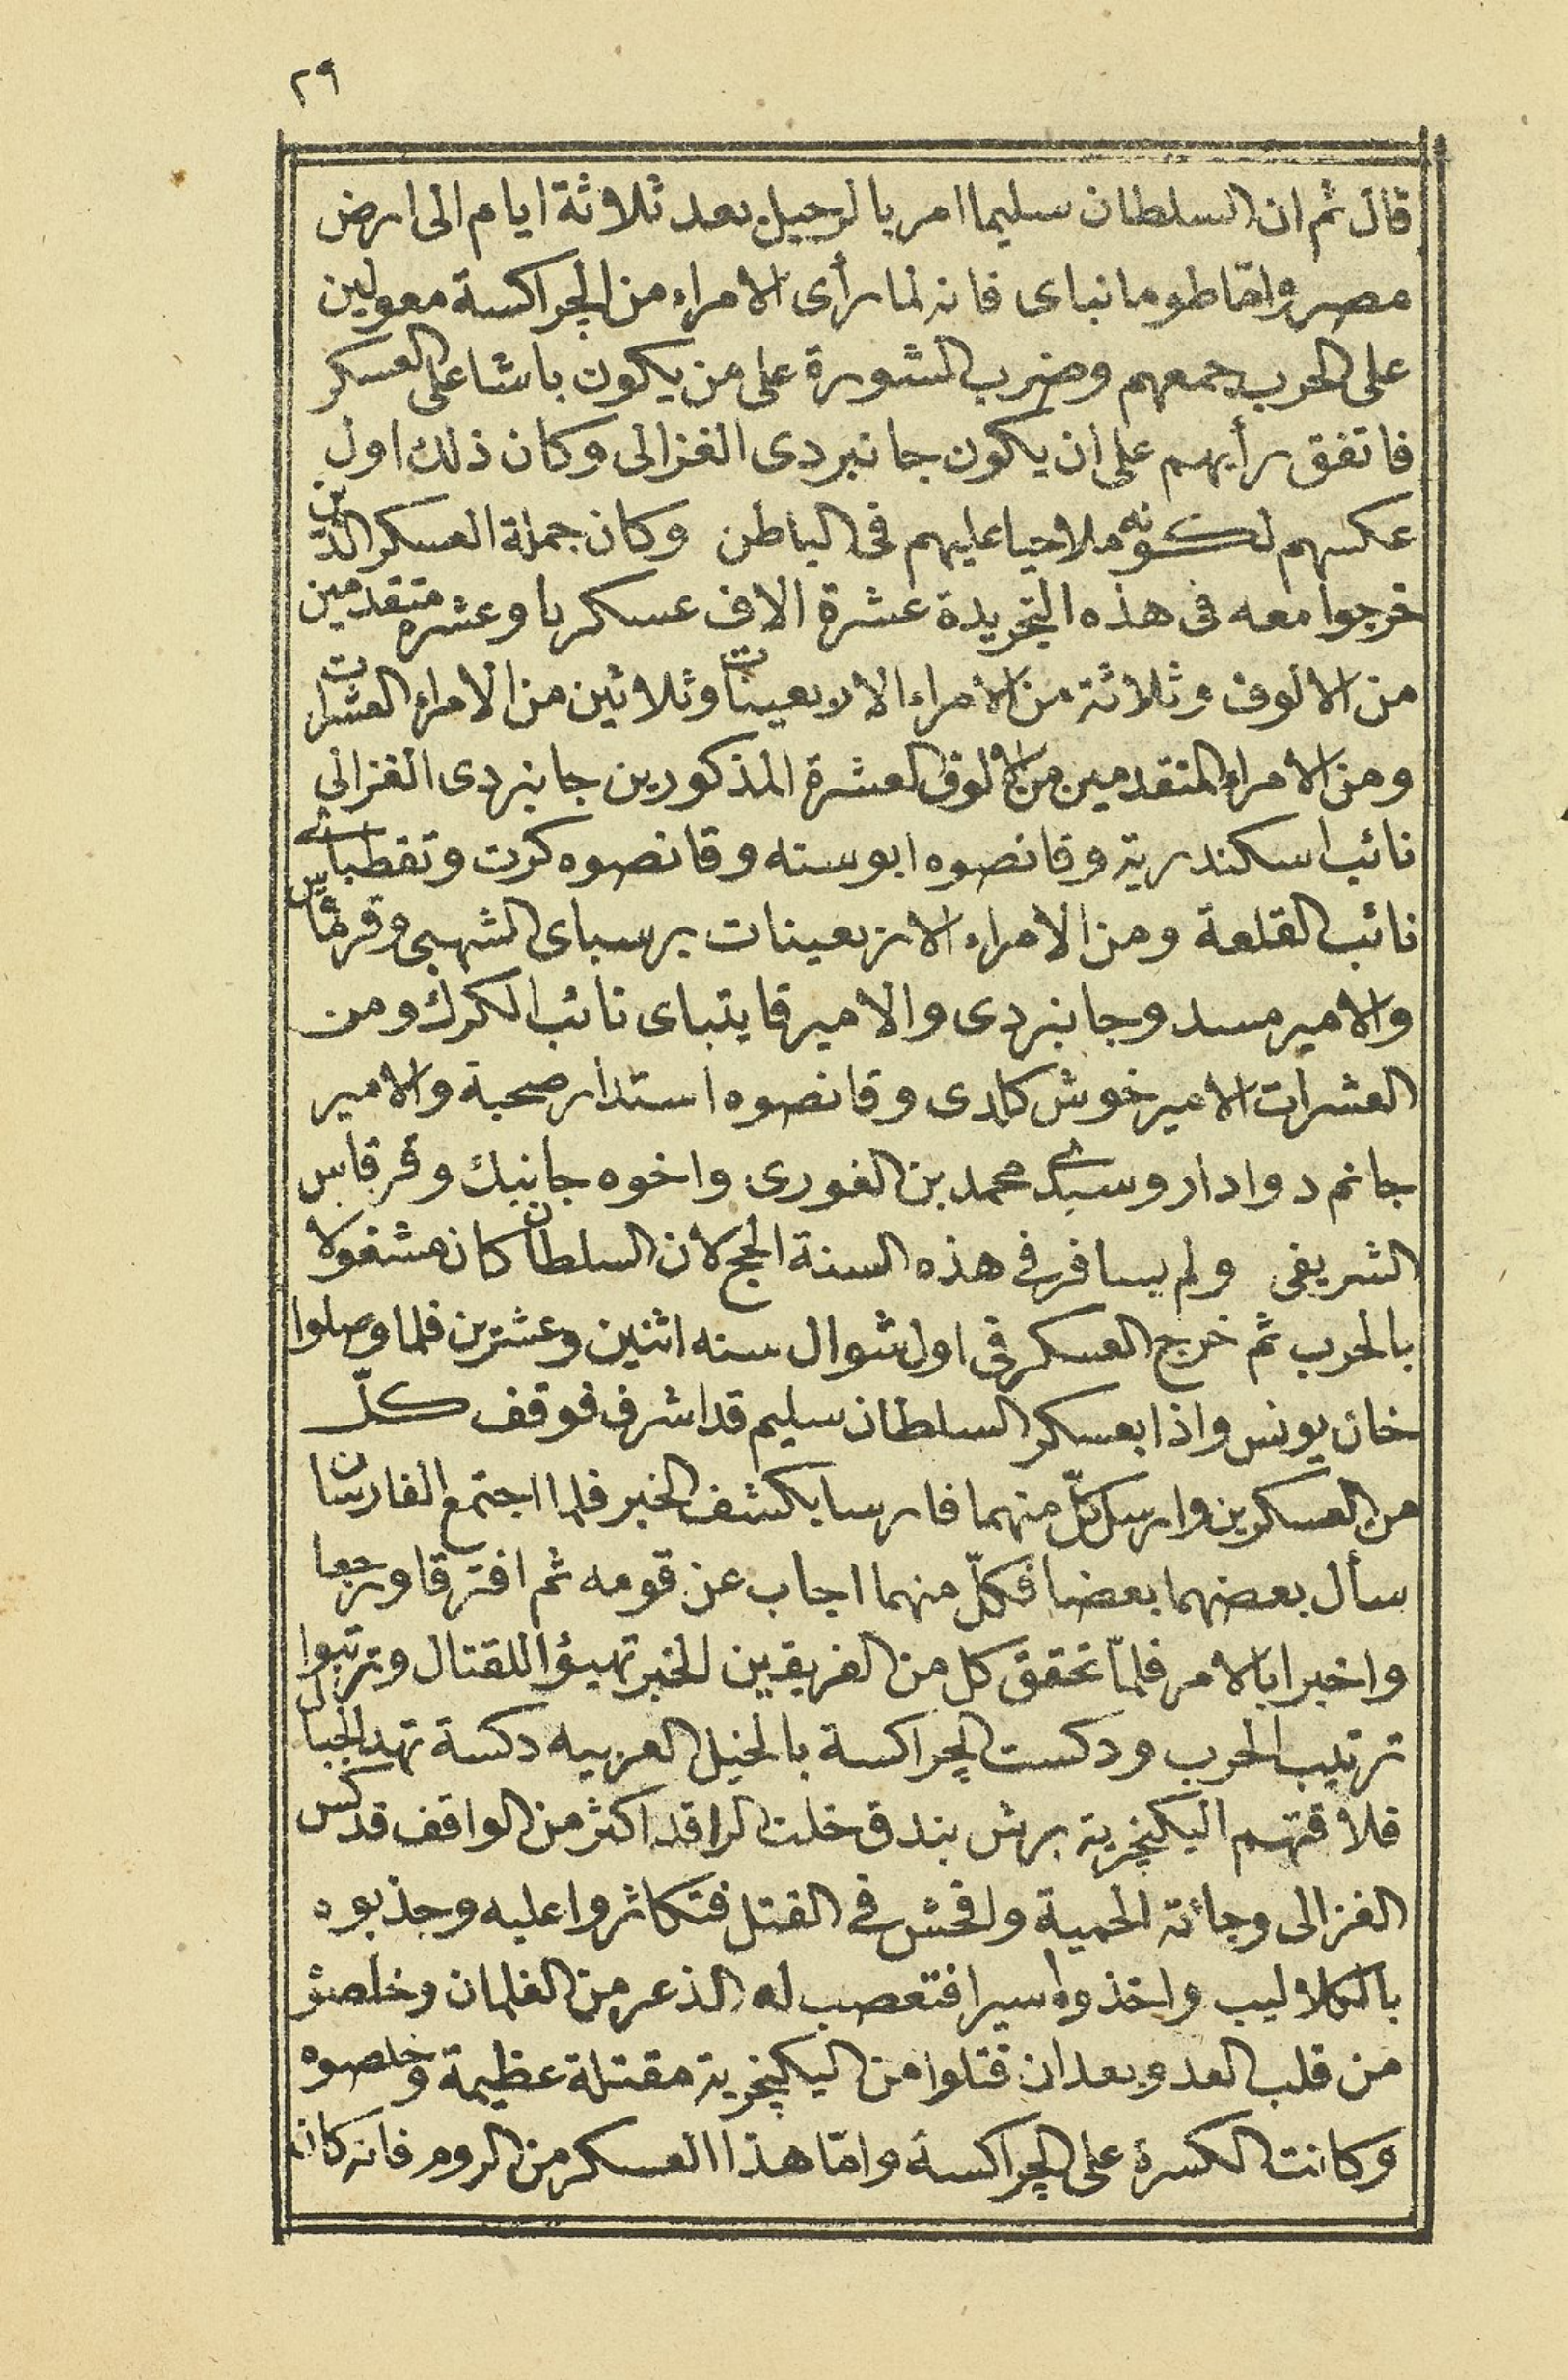 ٢٩
قال ثم ان السلطان سليما امر بالرحيل بعد ثلاثة ايام الى ارض
مصر وامّا طومانباى فانه لما رأى الامراء من الجراكسة معولين
على الحرب جمعهم وضرب الشورة على من يكون باشا على العسكر
فاتفق رأيهم على ان يكون جانبردى الغزالى وكان ذلك اول
عكسهم لكونه ملاحيا عليهم فى الباطن وكان جملة العسكر الذين
خرجوا معه فى هذه التجريدة عشرة الاف عسكريا وعشره متقدمين
من الالوف وثلاثة من الامراء الاربعينات وثلاثين من الامراء العشرات
ومن الامراء المتقدمين من الالوف العشرة المذكورين جانبردى الغزالى
نائب اسكندرية وقانصوه ابو سنه وقانصوه كرت وتقطباى
نائب القلعة ومن الامراء الاربعينات برسباى الشهبى وقرماس
والامير مسد وجانبردى والامير قايتباى نائب الكرك ومن
العشرات الامير خوش كلدى وقانصوه استدار صحبة والامير
جانم دوادار وسيدى محمد بن الغورى واخوه جانبك وقرقاس
الشريفى ولم يسافر فى هذه السنة الحج لان السلطان كان مشغولا
بالحرب ثم خرج العسكر فى اول شوال سنه اثنين وعشرين فلما وصلوا
خان يونس واذا بعسكر السلطان سليم قد اشرف فوقف كلّ
من العسكرين وارسل كلّ منهما فارسا يكشف الخبر فلما اجتمع الفارسان
سأل بعضهما بعضا فكلّ منهما اجاب عن قومه ثم افترقا ورجعا
واخبرا بالامر فلمّا تحقق كل من الفريقين الخبر تهيؤا للقتال وترتبوا
ترتيب الحرب ودكست الجراكسة بالخيل العربيه دكسة تهد الجبال
فلاقتهم اليكنجرية برش بندق خلت الراقد اكثر من الواقف قدكس
الغزالى وجائته الحمية وافحش فى القتل فتكاثروا عليه وجذبوه
بالكلاليب واخذوه اسيرا فتعصب له الذعر من الغلمان وخلصؤ
من قلب العدو بعد ان قتلوا من اليكنجرية مقتلة عظيمة وخلصوه
وكانت الكسرة على الجراكسة وامّا هذا العسكر من الروم فانه كان